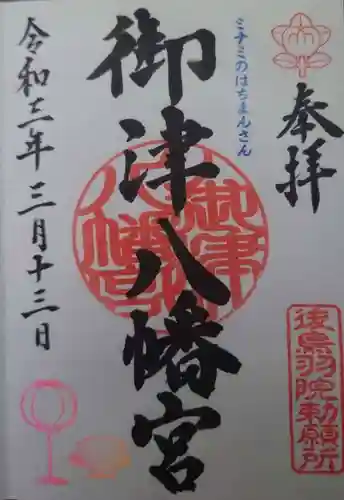 奉拝
ミナミのはちまんさん
御津八幡宮
令和三年三月十三日
後鳥羽院勅願所
御津
八幡宮